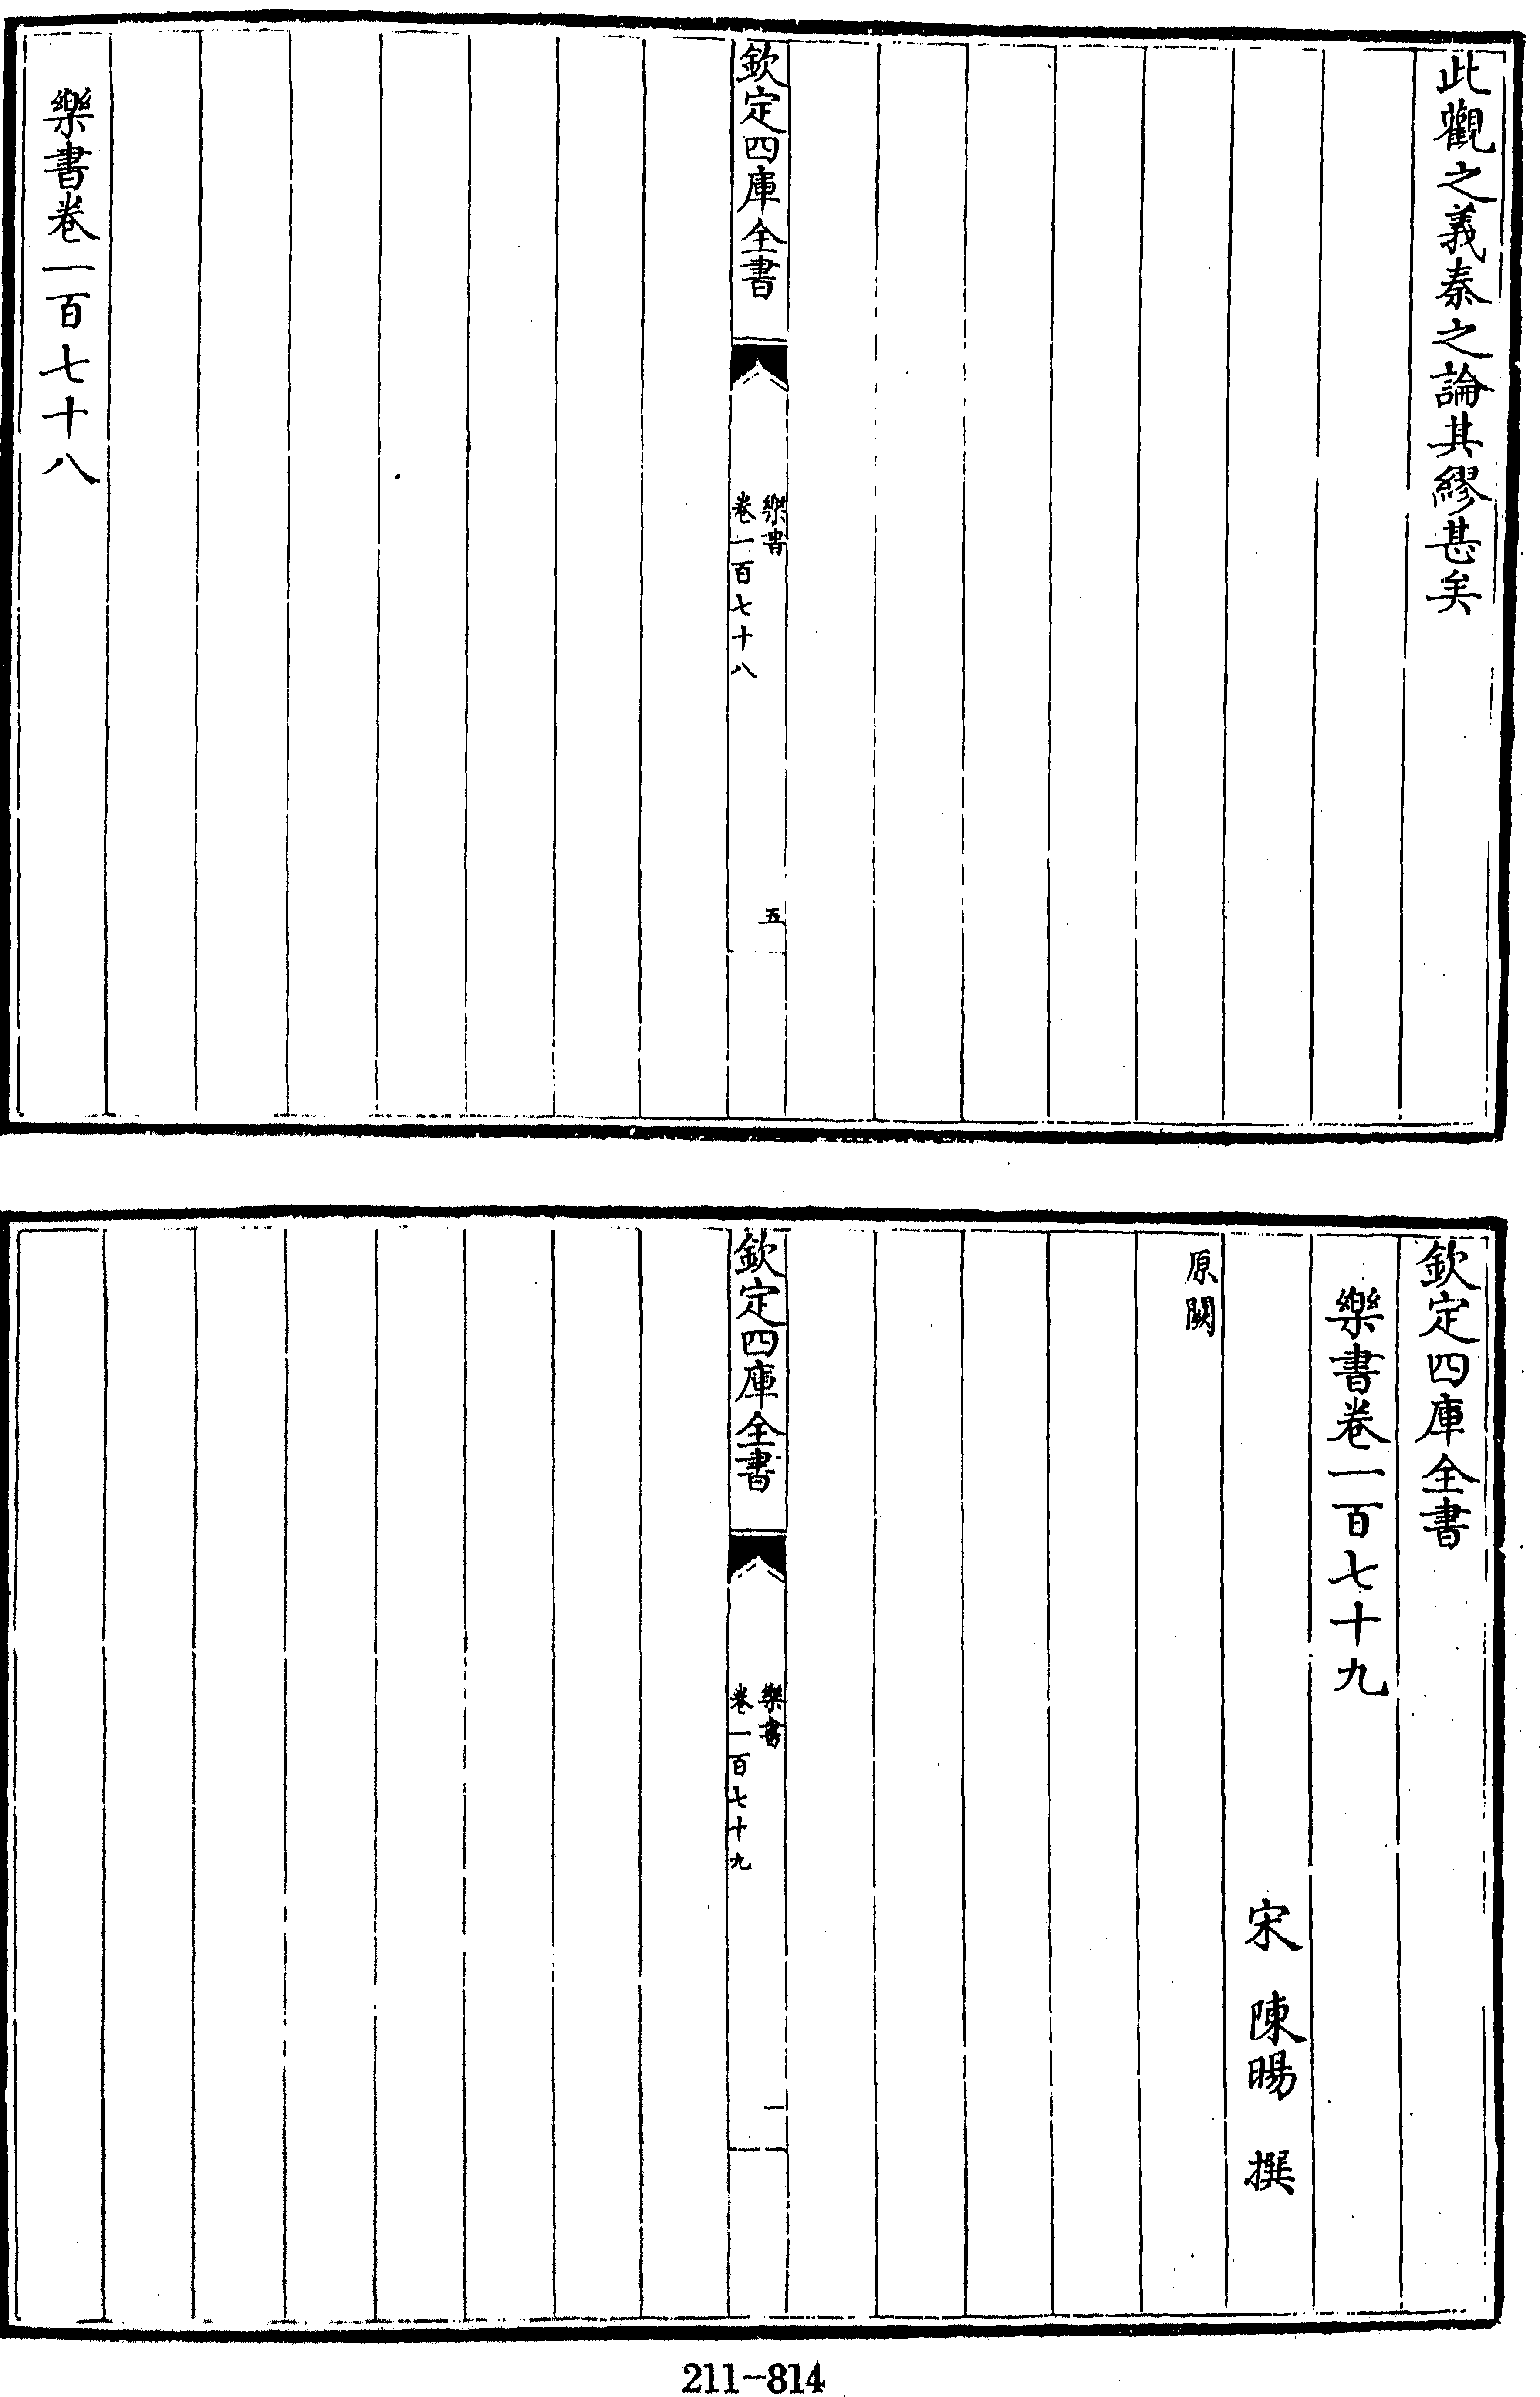 此觀之義秦之論其繆甚矣
欽定四庫全書
樂書
卷一百七十八
五
樂書卷一百七十八
欽定四庫全書
樂書卷一百七十九
宋 陳暘 撰
原闕
欽定四庫全書
樂書
卷一百七十九
一
211-814